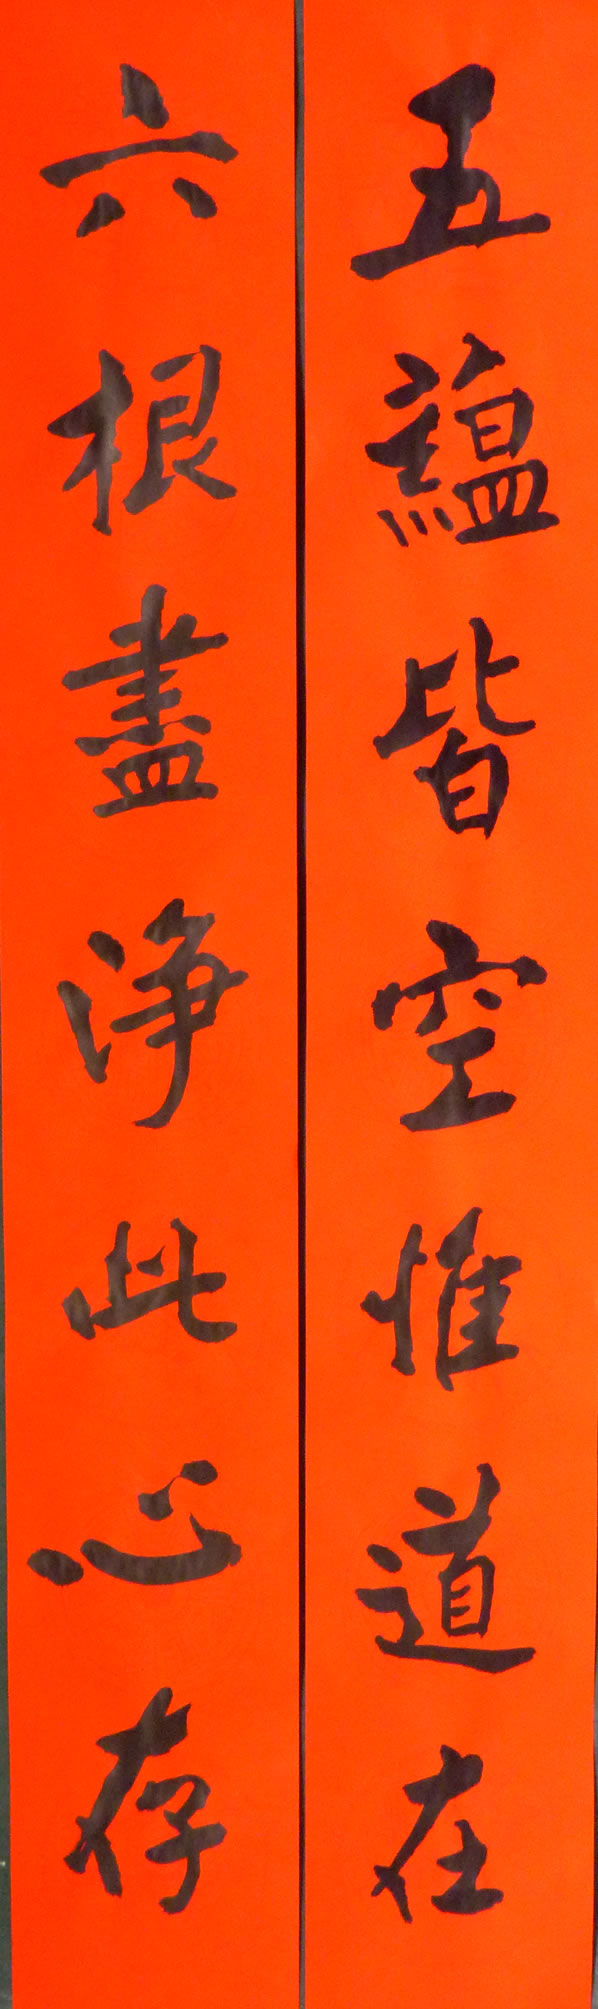 五蘊皆空惟道在
六根盡淨此心存